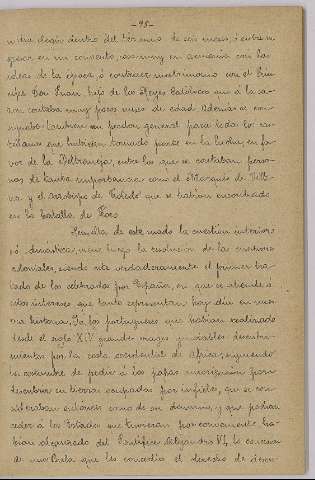 - 95 -
nitra elegir dentro del término de seis meses, ó entrar
gresar en un convento, así muy en armonía con las
ideas de la época, ó contraer matrimonio con el Prín
cipe Don Juan, hijo de los Reyes Católicos que á la sa-
zon contaba muy pocos meses de edad. Además se con-
signaba tambien un perdon general para todos los cas-
tellanos que hubiesen tomado parte en la lucha en fa-
vor de la Beltraneja, entre los que se contaban perso-
nas de tanta importancia como el Marqués de Ville-
na y el Arzobispo de Toledo que se habían encontrado
en la batalla de Toro.
Resuelta de este modo la cuestion interior
ó dinástica, vino luego la resolucion de las cuestiones
coloniales, siendo este verdaderamente el primer tra-
tado de los celebrados por España, en que se atiende á
estos intereses que tanto representan hoy día en nues-
tra historia. Ya los portugueses que habían realizado
desde el siglo XIV grandes viajes y notables descubri-
mientos por la costa occidental de Africa, siguiendo
la costumbre de pedir á los papas autorizacion para
descubrir en tierras ocupadas por infieles, que se con-
sideraban entonces como de su dominio, y que podían
ceder á los Estados que tuvieran por conveniente, ha-
bían alcanzado del Pontífice Alejandro VI, la concesion
de una Bula que les concedía el derecho de descu-